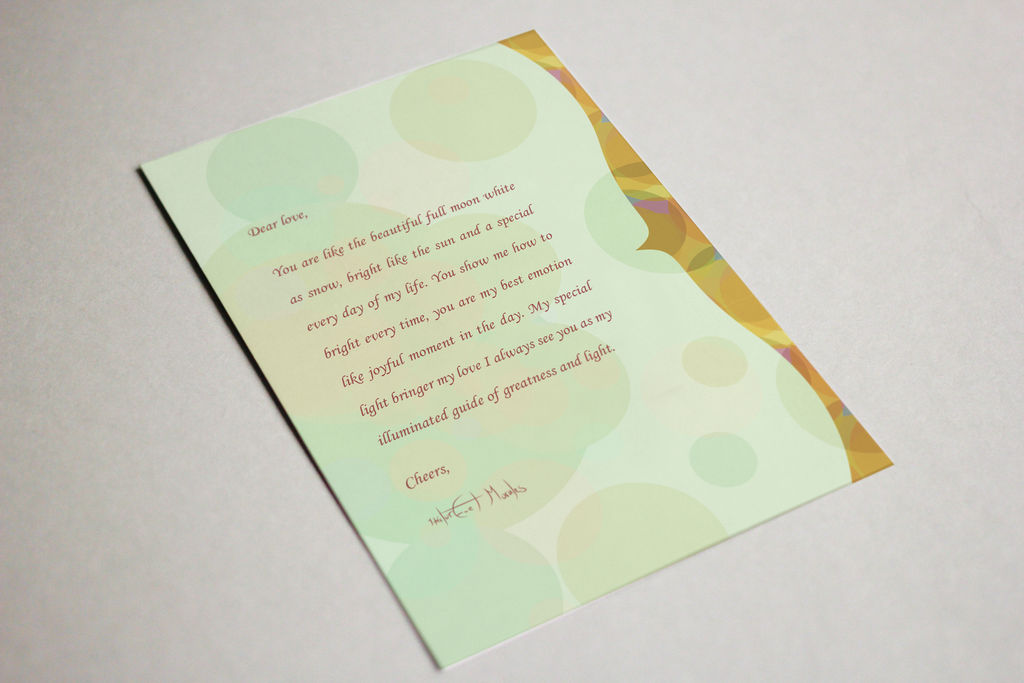 Dear love,
You are like the beautiful full moon white
as snow, bright like the sun and a special
every day of my life. You show me how to
bright every time, you are my best emotion
like joyful moment in the day. My special
light bringer my love I always see you as my
illuminated guide of greatness and light.
Cheers,
Morales